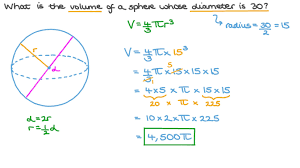 What is the volume of a sphere whose diameter is 30?
V = 4/3 πr³
↳ radius = 30/2 = 15
r
d
d = 2r
r = 1/2 d
V = 4/3 π × 15³
= 4/3 π × 15 × 15 × 15
1
5
= 4 × 5 × π × 15 × 15
20 × π × 225
= 10 × 2 × π × 225
= 4,500π